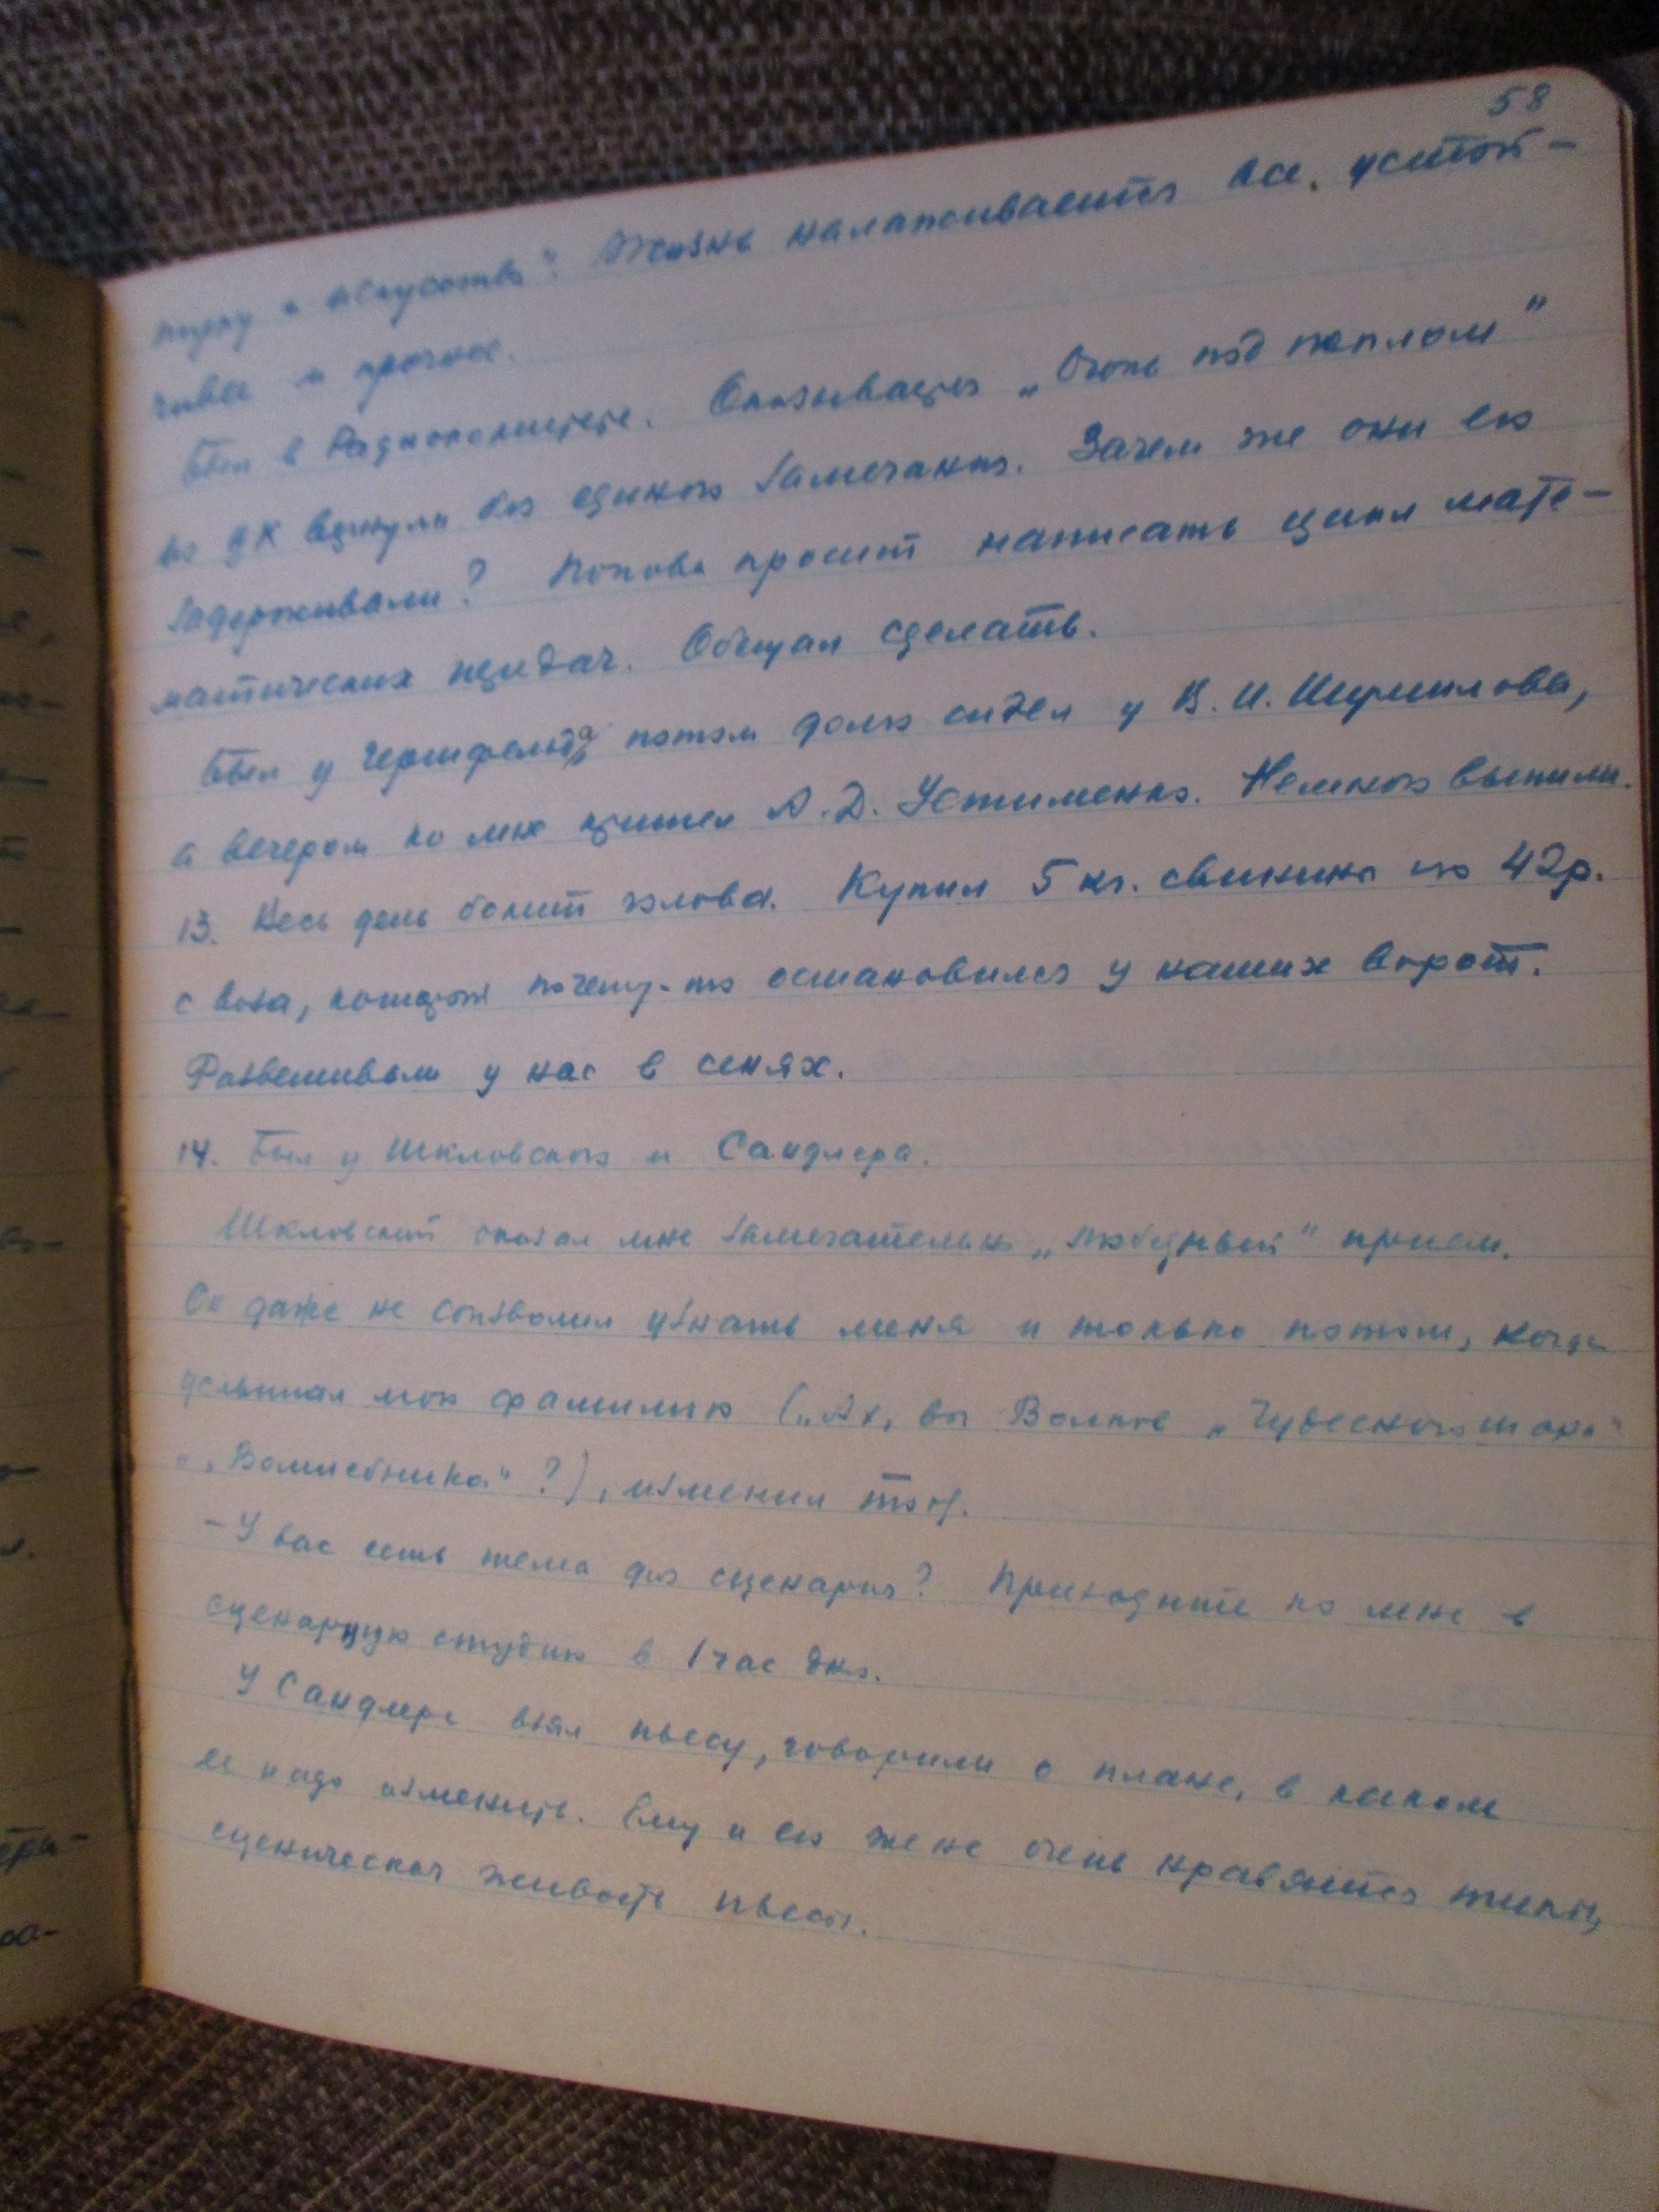 58
туру и искусство". Жизнь налаживается все устой-
чивее и прочнее.
Был в Радиокомитете. Оказывается „Огонь под пеплом"
из ЦК вернули без единого замечания. Зачем же они его
задерживали? Попова просит написать цикл мате-
матических передач. Обещал сделать.
Был у Герифельда, потом долго сидел у В. И. Шумилова,
а вечером ко мне пришел А. Д. Устименко. Немного выпили.
13. Весь день болит голова. Купил 5 кг. свинины по 42р.
с воза, который почему-то остановился у наших ворот.
Развешивали у нас в сенях.
14. Был у Шкловского и Сандлера.
Шкловский оказал мне замечательно „любезный" прием.
Он даже не соизволил узнать меня и только потом, когда
услышал мою фамилию („Ах, вы Волков „Чудесного шара"
и „Волшебника"?), изменил тон.
– У вас есть тема для сценария? Приходите ко мне в
сценарную студию в 1 час дня.
У Сандлера взял пьесу, говорили о плане, в каком
ее надо изменить. Ему и его жене очень нравятся типы,
сценическая живость пьесы.